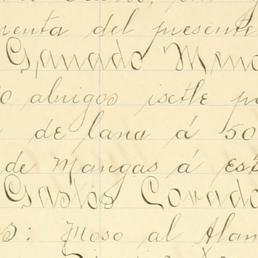 menta del presente
Ganado Men
0 abrigos isetle p
de lana á 50
de Mangas á est
Gastos Corado
s: Moso al Alam